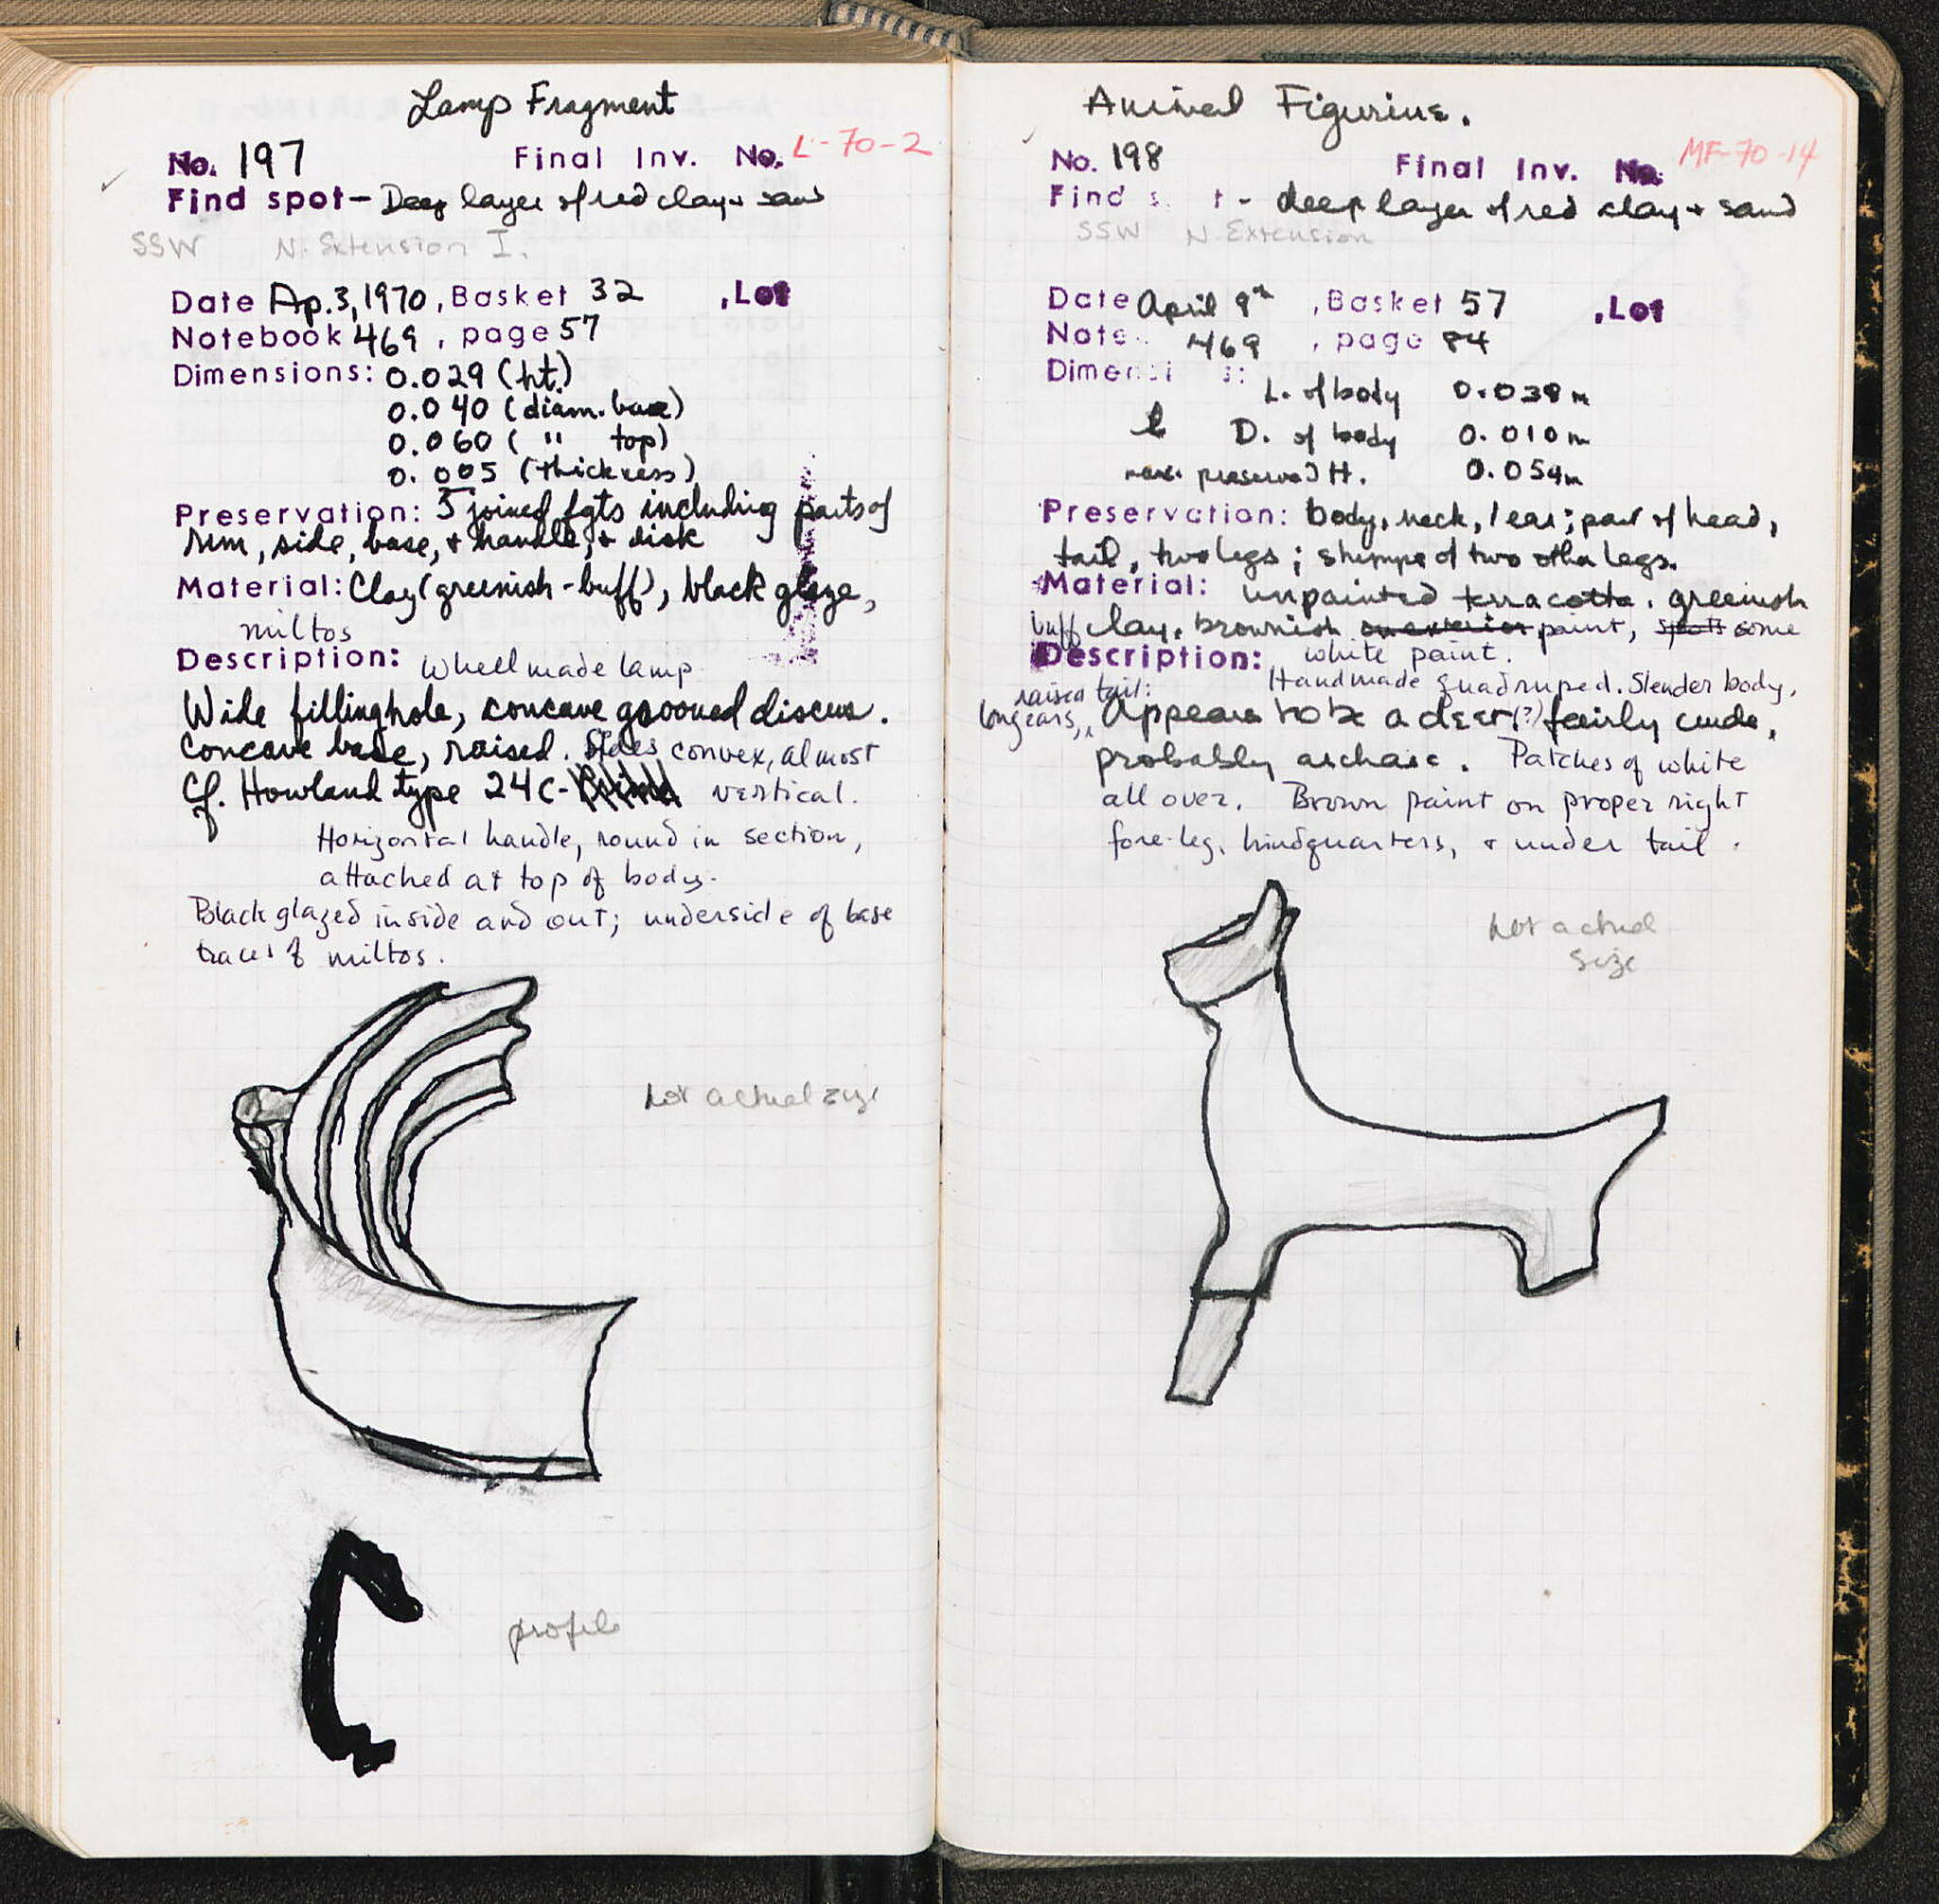 Lamp Fragment
No. 197 Final Inv. No. L-70-2
Find spot- Deep layer of red clay + sand
SSW N. Extension I.
Date Ap. 3, 1970, Basket 32 , Lot
Notebook 469 , page 57
Dimensions: 0.029 (ht.)
0.040 (diam. base)
0.060 ( " top)
0.005 (thickness)
Preservation: 5 joined fgts including parts of
rim, side, base, + handle, + disk
Material: Clay (greenish-buff), black glaze,
miltos
Description: Wheelmade lamp
Wide filling hole, concave grooved discus.
Concave base, raised. Sides convex, almost
Cf. Howland type 24C- vertical.
Horizontal handle, round in section,
attached at top of body.
Black glazed inside and out; underside of base
traces of miltos.
Not actual size
profile
Animal Figurine.
No. 198 Final Inv. No. MF-70-14
Find s t - deep layer of red clay + sand
SSW N. Extension
Date April 9th , Basket 57 , Lot
Note 469 , page 84
Dimensi s:
L. of body 0.038m
D. of body 0.010m
max. preserved H. 0.054m
Preservation: body, neck, 1 ear; part of head,
tail, two legs; stumps of two other legs.
Material: unpainted terracotta. greenish
buff clay. brownish on exterior paint, spots some
Description: white paint.
raised tail: Handmade quadruped. Slender body,
long ears, Appears to be a deer(?) fairly crude,
probably archaic. Patches of white
all over. Brown paint on proper right
fore-leg, hindquarters, + under tail.
Not actual
size